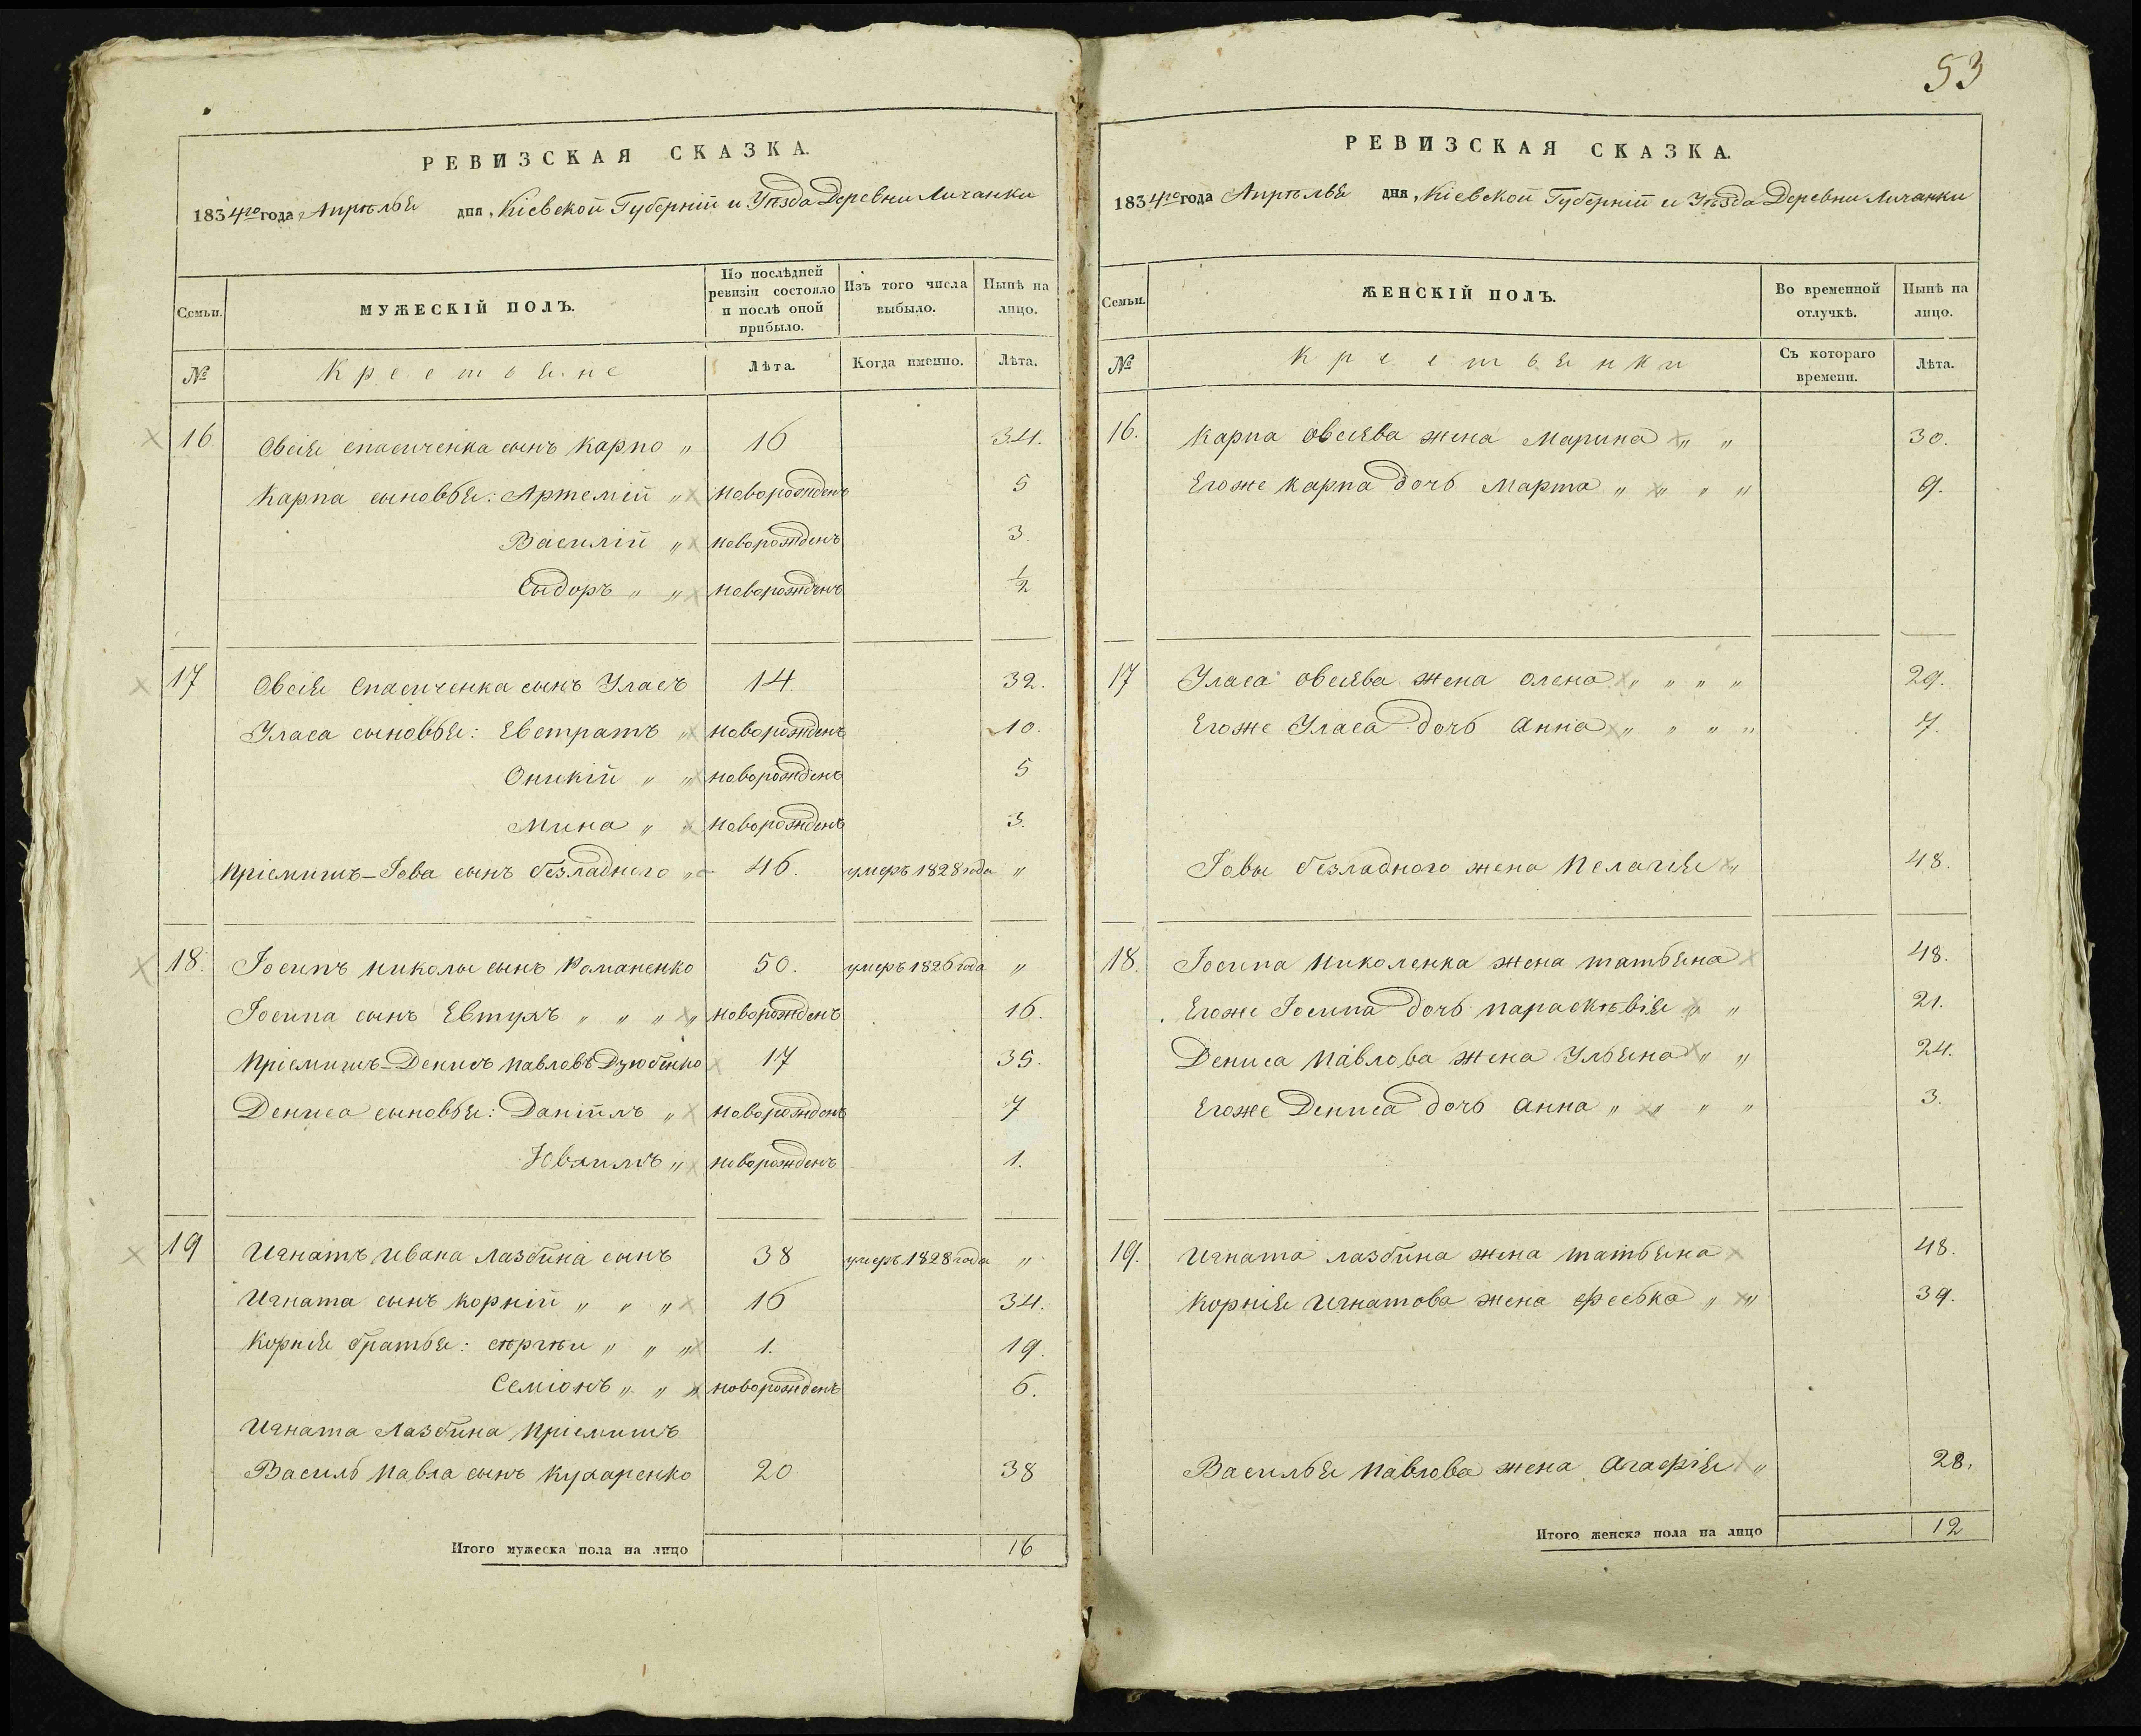 53
РЕВИЗСКАЯ СКАЗКА.
1834го года Апрѣлья дня, Кіевской Губерніи и Уѣзда Деревни Личанки
Семьи.
МУЖЕСКІЙ ПОЛЪ.
По послѣдней ревизіи состояло и послѣ оной прибыло.
Изъ того числа выбыло.
Нынѣ на лицо.
№
Крестьяне
Лѣта.
Когда именно.
Лѣта.
16 Овсія Спасиченка сынъ Карпо „ 16 34.
Карпа сыновья: Артемій „ новорожденъ 5
Василій „ новорожденъ 3.
Сыдоръ „ „ новорожденъ 1/2
17 Овсія Спасиченка сынъ Уласъ 14. 32.
Уласа сыновья: Евстратъ „ новорожденъ 10.
Оникій „ „ новорожденъ 5
Мина „ „ новорожденъ 3.
Пріемишъ–Іова сынъ безладнего „ 46. умеръ 1828 года „
18. Іосипъ Николы сынъ Романенко 50. умеръ 1826 года „
Іосипа сынъ Евтухъ „ „ „ „ новорожденъ 16.
Пріемишъ–Денисъ Павловъ Дзюбенко 17 35.
Дениса сыновья: Даніилъ „ новорожденъ 7
Ювхимъ „ новорожденъ 1.
19 Игнатъ Ивана Лазбина сынъ 38 умеръ 1828 года „
Игната сынъ Корній „ „ „ 16 34.
Корнія братья: Сѣргѣи „ „ „ 1. 19.
Семіонъ „ „ „ новорожденъ 6.
Игната Лазбина Пріемишъ
Василь Павла сынъ Кухаренко 20 38
Итого мужеска пола на лицо 16
РЕВИЗСКАЯ СКАЗКА.
1834го года Апрѣлья дня, Кіевской Губерніи и Уѣзда Деревни Личанки
Семьи.
ЖЕНСКІЙ ПОЛЪ.
Во временной отлучкѣ.
Нынѣ на лицо.
№
Крестьянки
Съ котораго времени.
Лѣта.
16. Карпа Овсіева жена Марина „ „ 30.
Егоже Карпа дочь Марта „ „ „ „ 9.
17 Уласа Овсіева жена Олена „ „ „ „ 29.
Егоже Уласа дочь Анна „ „ „ „ 7.
Іовы безладного жена Пелагія „ 48.
18. Іосипа Николенка жена Татьяна 48.
Егоже Іосипа дочь Параскѣвія „ „ 21.
Дениса Павлова жена Ульяна „ „ 24.
Егоже Дениса дочь Анна „ „ „ „ 3.
19. Игната Лазбина жена Татьяна 48.
Корнія Игнатова жена Феська „ „ 39.
Василья Павлова жена Агафія „ 28.
Итого женска пола на лицо 12